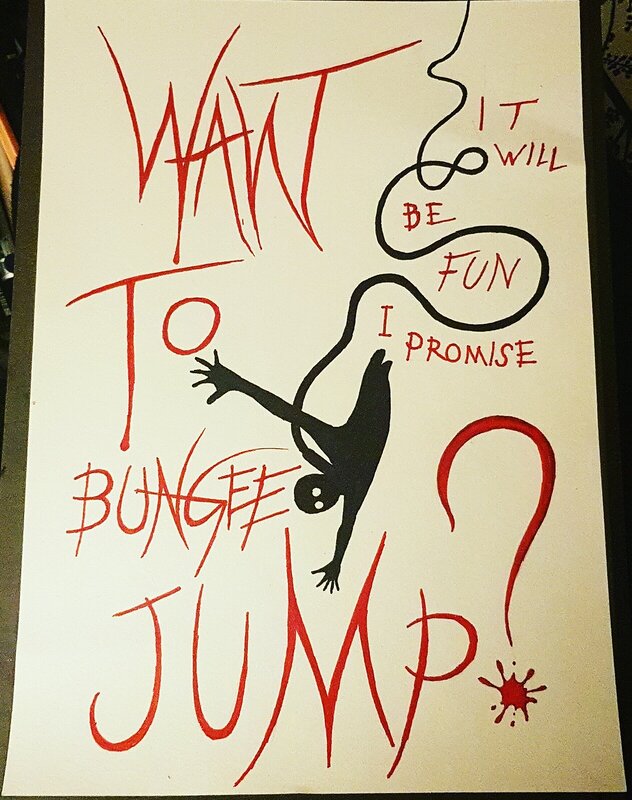 WANT
TO
BUNGEE
JUMP?
IT
WILL
BE
FUN
I
PROMISE